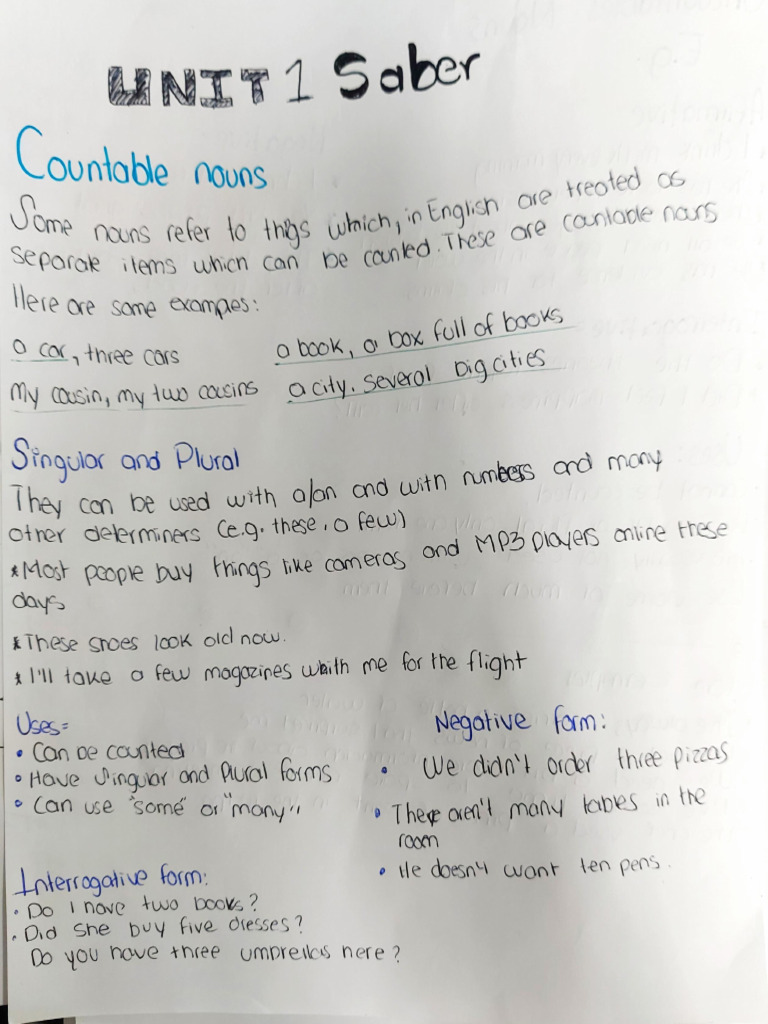 UNIT 1 Saber
Countable nouns
Some nouns refer to things which, in English are treated as
separate items which can be counted. These are countable nouns
Here are some exampes:
a car, three cars
a book, a box full of books
My cousin, my two cousins
a city. several big cities
Singular and Plural
They can be used with a/an and with numbers and many
other determiners (e.g. these, a few)
*Most people buy things like cameras and MP3 players online these
days
*These shoes look old now.
*I'll take a few magazines whith me for the flight
Uses=
• Can be counted
• Have Singular and Plural forms
• Can use "some" or "many"
Negative form:
• We didn't order three pizzas
• There aren't many tables in the
room
• He doesn't want ten pens.
Interrogative form:
• Do I have two books?
• Did she buy five dresses?
Do you have three umbrellas here?